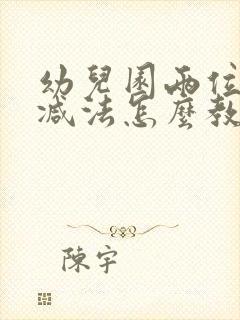 幼兒園兩位
減法怎麼教
陳宇